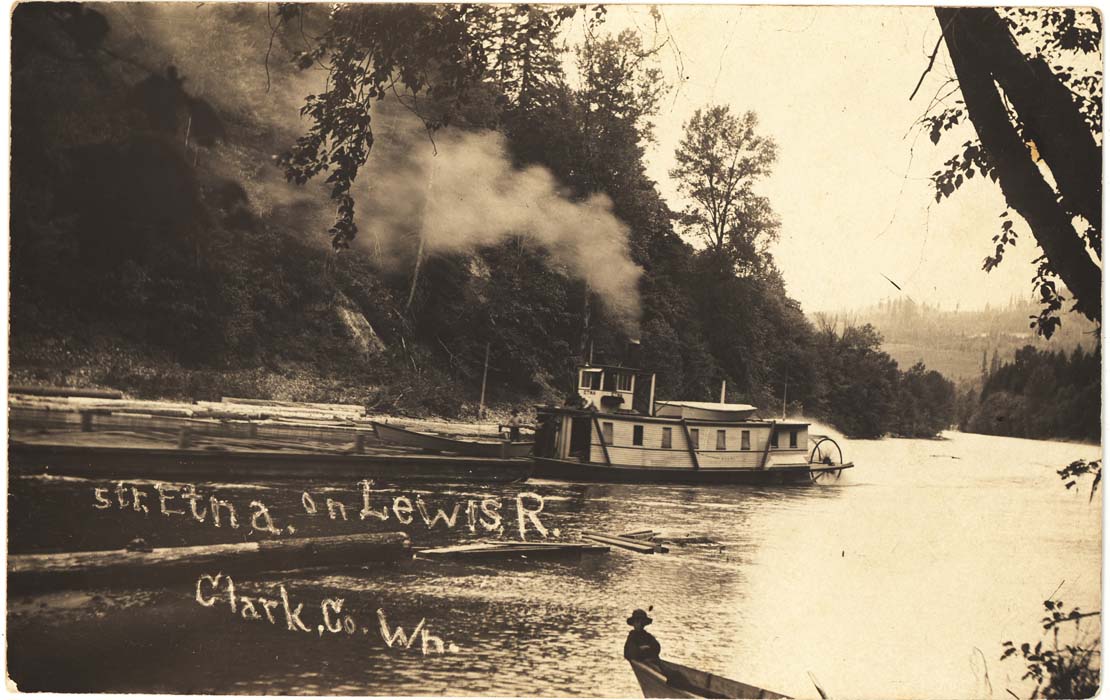 str. Etna. on Lewis, R.
Clark, Co. Wn.